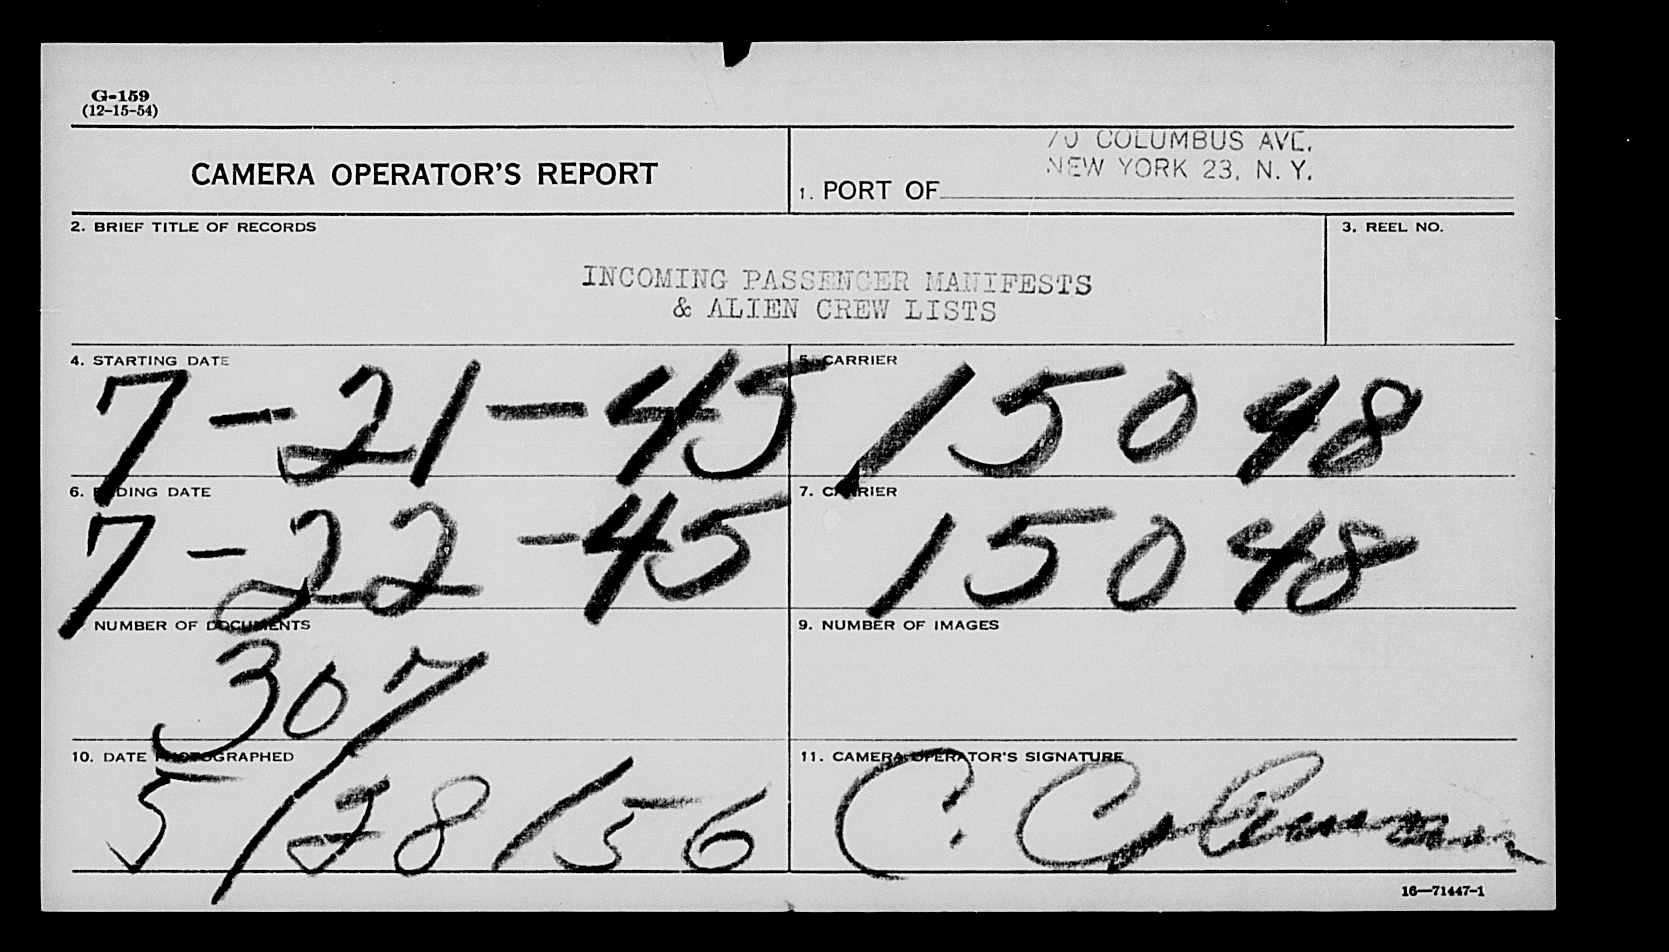 G-159
(12-15-54)
CAMERA OPERATOR'S REPORT
70 COLUMBUS AVE.
NEW YORK 23, N. Y.
1. PORT OF
2. BRIEF TITLE OF RECORDS
3. REEL NO.
INCOMING PASSENGER MANIFESTS
& ALIEN CREW LISTS
4. STARTING DATE
5. CARRIER
7-21-45
15048
6. ENDING DATE
7. CARRIER
7-22-45
15048
NUMBER OF DOCUMENTS
9. NUMBER OF IMAGES
307
10. DATE PHOTOGRAPHED
11. CAMERA OPERATOR'S SIGNATURE
5/28/56
C. Coleman
16—71447-1